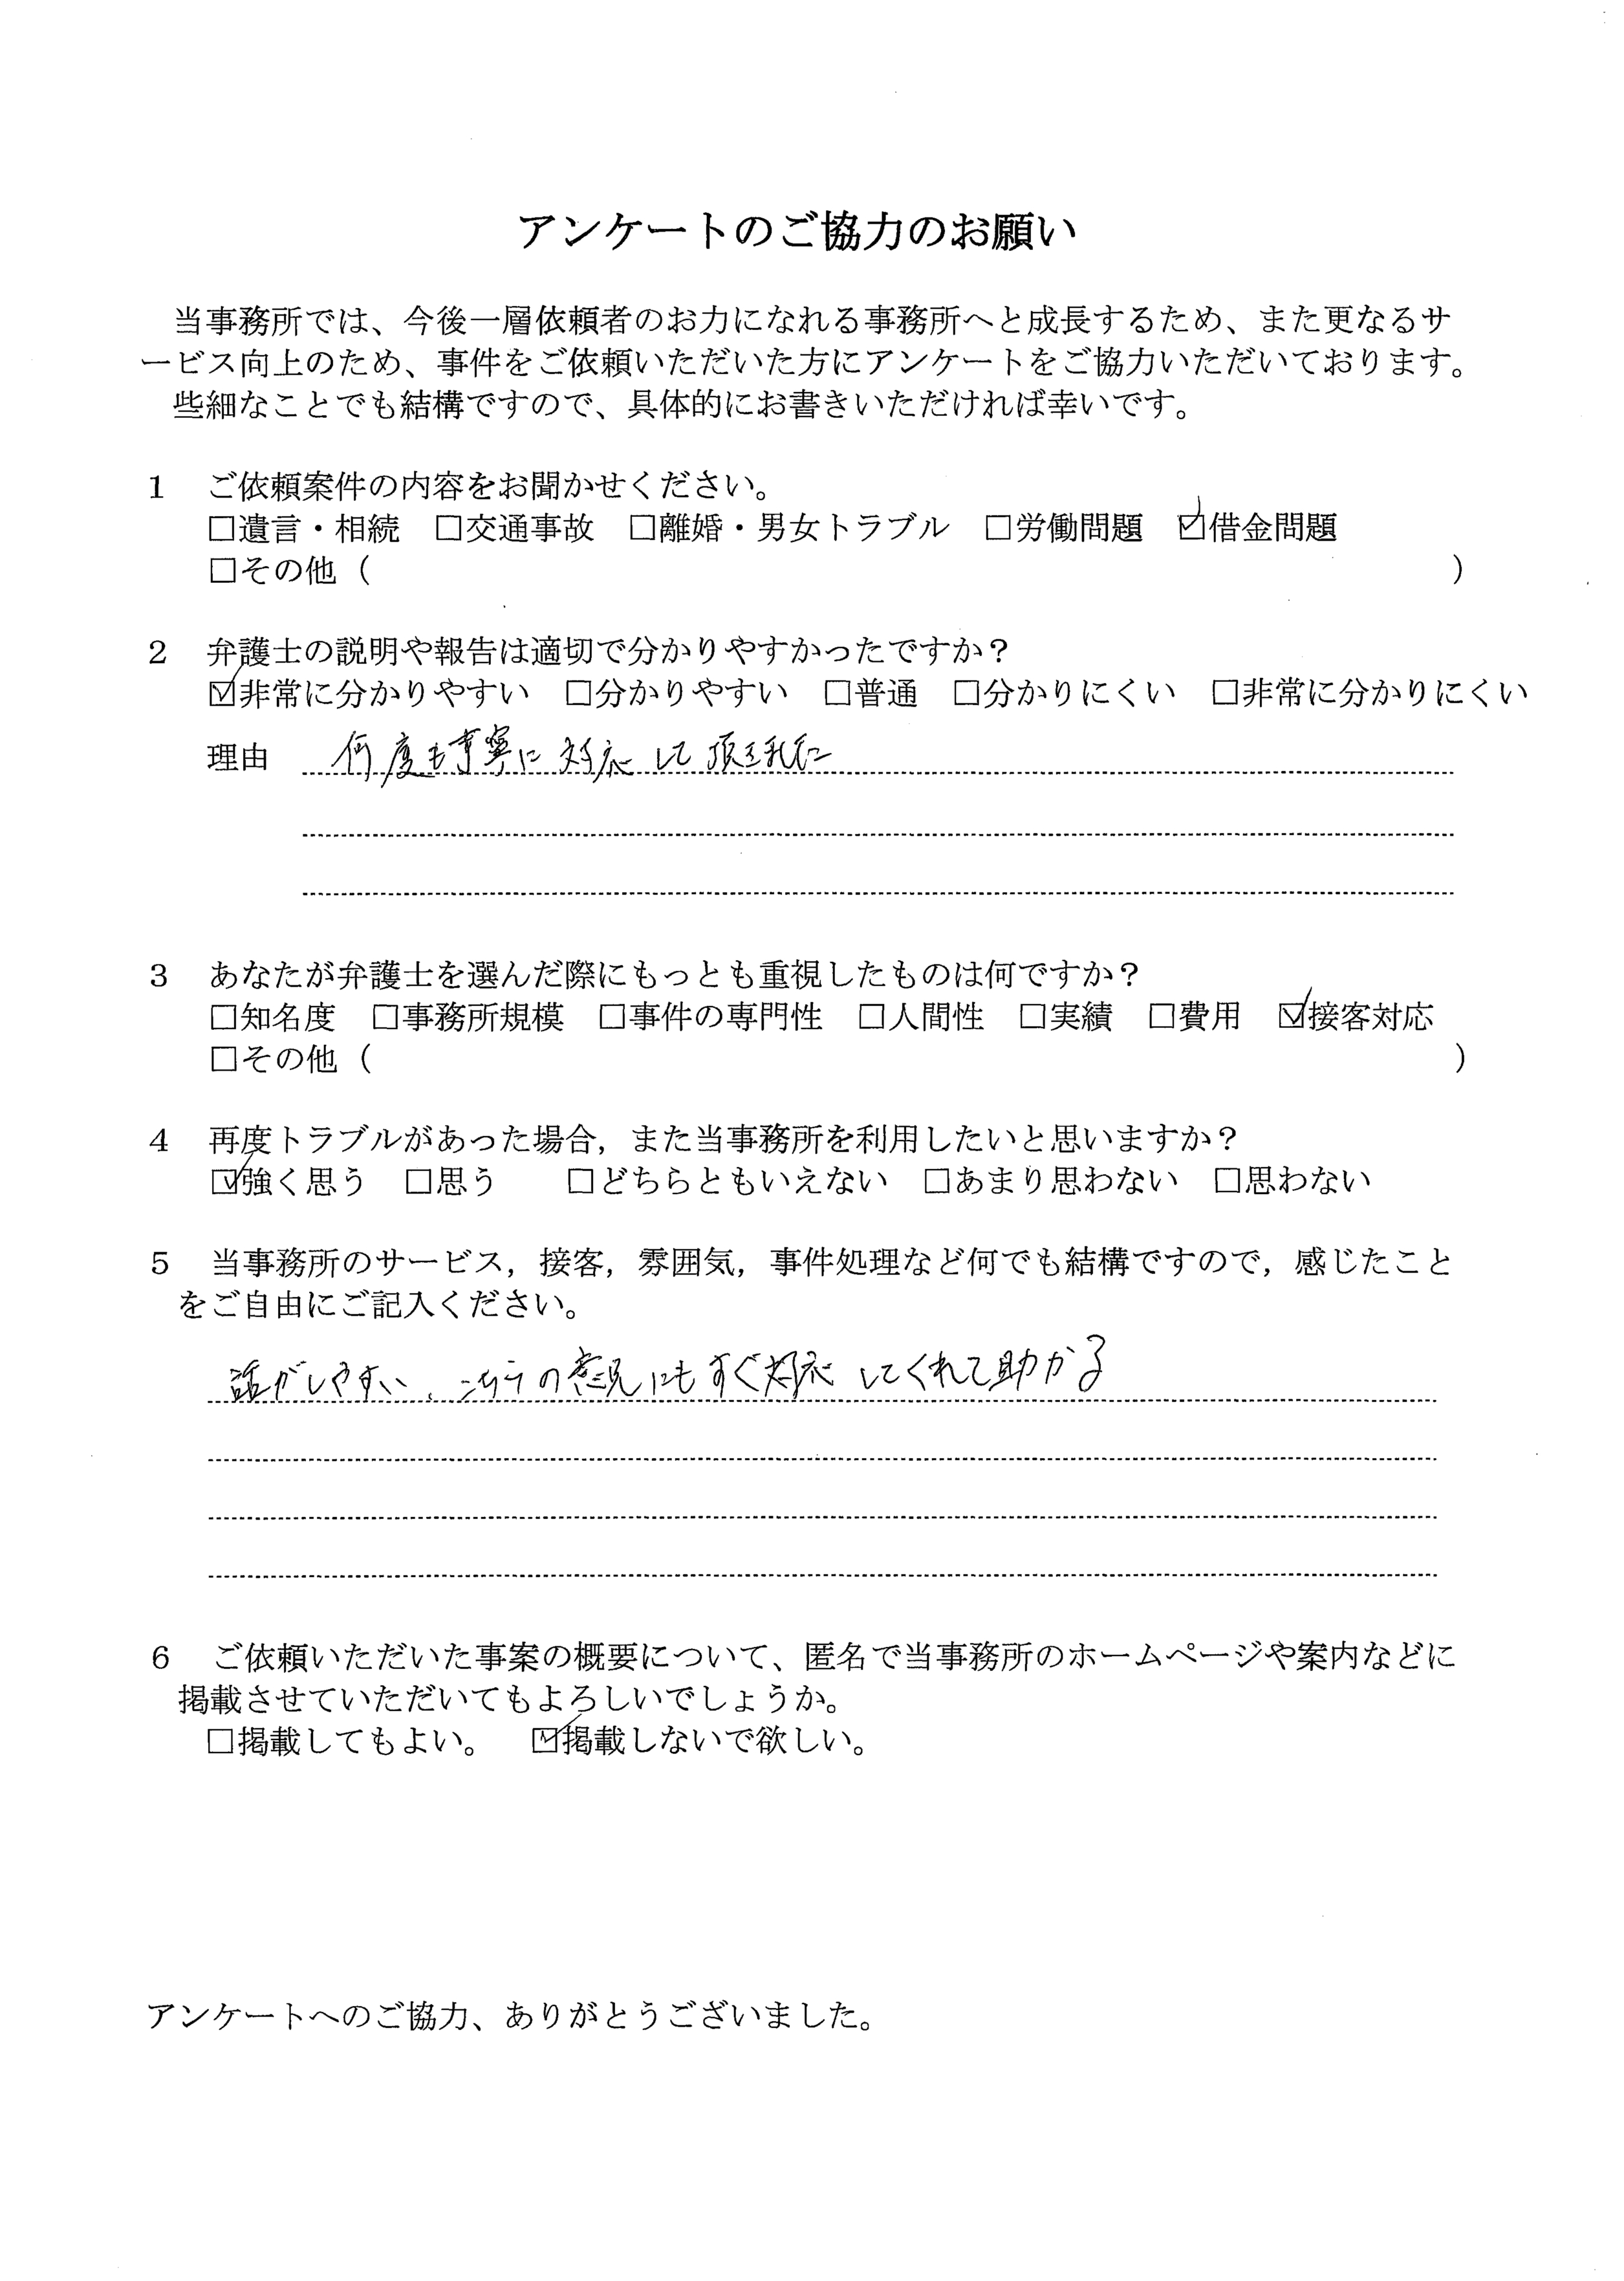 アンケートのご協力のお願い
当事務所では、今後一層依頼者のお力になれる事務所へと成長するため、また更なるサ
ービス向上のため、事件をご依頼いただいた方にアンケートをご協力いただいております。
些細なことでも結構ですので、具体的にお書きいただければ幸いです。
1 ご依頼案件の内容をお聞かせください。
□遺言・相続 □交通事故 □離婚・男女トラブル □労働問題 ☑借金問題
□その他（ ）
2 弁護士の説明や報告は適切で分かりやすかったですか？
☑非常に分かりやすい □分かりやすい □普通 □分かりにくい □非常に分かりにくい
理由 何度も丁寧に対応して頂き
3 あなたが弁護士を選んだ際にもっとも重視したものは何ですか？
□知名度 □事務所規模 □事件の専門性 □人間性 □実績 □費用 ☑接客対応
□その他（ ）
4 再度トラブルがあった場合，また当事務所を利用したいと思いますか？
☑強く思う □思う □どちらともいえない □あまり思わない □思わない
5 当事務所のサービス，接客，雰囲気，事件処理など何でも結構ですので，感じたこと
をご自由にご記入ください。
話がしやすい、こちらの意見にもすぐ対応してくれて助かる
6 ご依頼いただいた事案の概要について、匿名で当事務所のホームページや案内などに
掲載させていただいてもよろしいでしょうか。
□掲載してもよい。 ☑掲載しないで欲しい。
アンケートへのご協力、ありがとうございました。